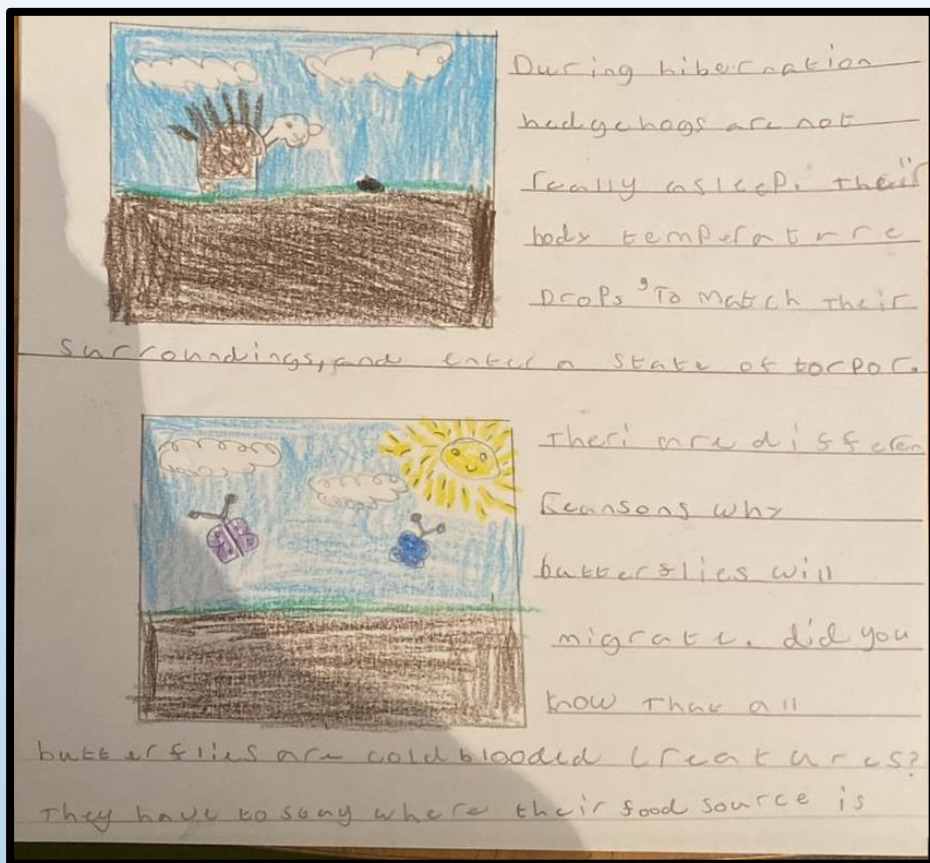 During hibernation
hedgehogs are not
really asleep. Their
body temperature
Drops 'To Match Their
surroundings, and enter a state of torpor.
Theri are differen
Reansons why
butterflies will
migrate. did you
know That all
butterflies are cold blooded Creatures?
They have to stay where their food source is